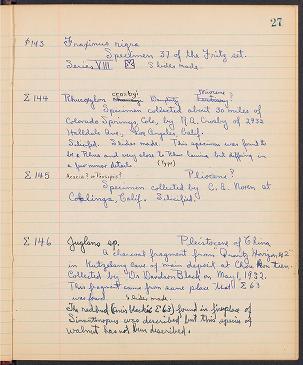 27
143 Fraxinus nigra
Specimen 37 of the Fritz set.
Series VIII Slides made.
crosbyi Miocene?
Σ 144 Rhusoxylon
Specimen collected about 30 miles of
Colorado Springs, Colo, by R.A. Crosby of 2932
Halldale Ave., Los Angeles, Calif.
Silicified. Slides made. This specimen was found to
be a Rhus and very close to Rhus but differing in
a few minor details. (Type)
Σ 145 Acacia? or Prosopis? Pliocene?
Specimen collected by C. B. at
Coalinga, Calif. Silicified.
Σ 146 Juglans sp. Pleistocene of China
A charcoal fragment from Quartz Horizon #2
in of main deposit at Chou Kou tien.
Collected by Dr. Davidson Black on May 1, 1932.
This fragment came from same place that Σ 63
was found. Slides made.
The redbud (Cercis blackii Σ 63) found in fireplace of
Sinanthropus was described but this species of
walnut has not been described.